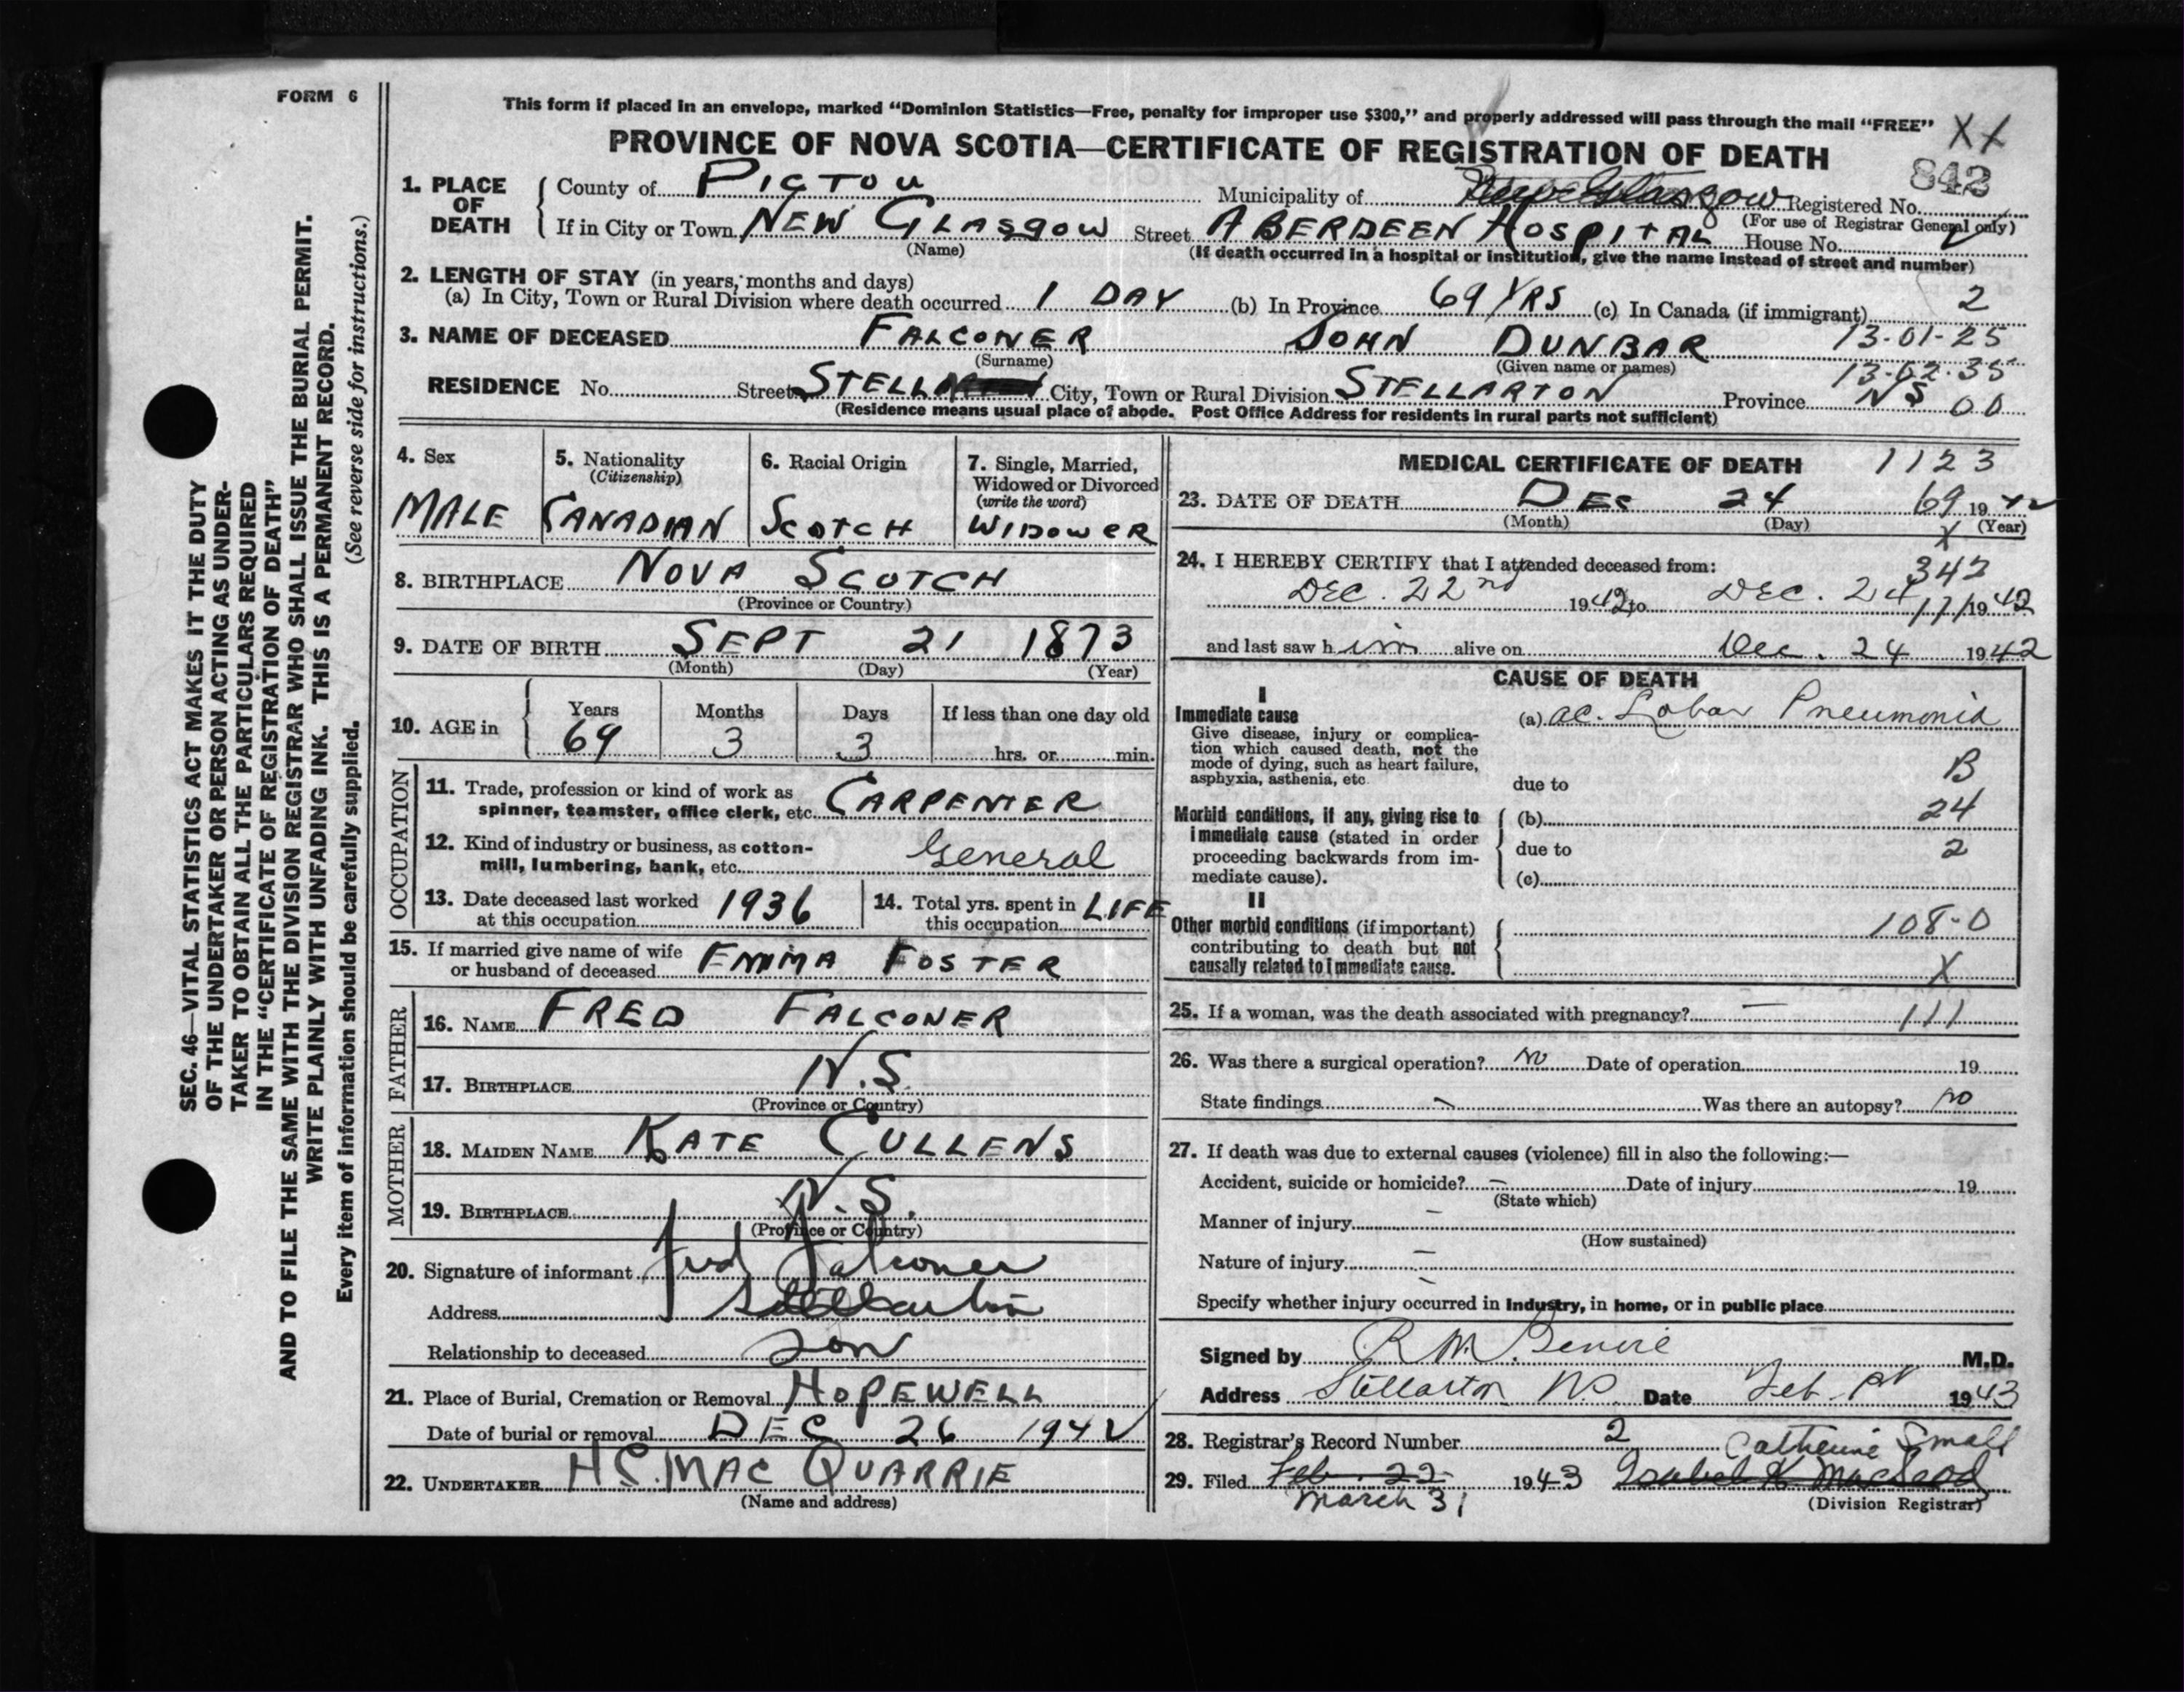 FORM 6
SEC. 46—VITAL STATISTICS ACT MAKES IT THE DUTY
OF THE UNDERTAKER OR PERSON ACTING AS UNDER-
TAKER TO OBTAIN ALL THE PARTICULARS REQUIRED
IN THE "CERTIFICATE OF REGISTRATION OF DEATH"
AND TO FILE THE SAME WITH THE DIVISION REGISTRAR WHO SHALL ISSUE THE BURIAL PERMIT.
WRITE PLAINLY WITH UNFADING INK. THIS IS A PERMANENT RECORD.
Every item of information should be carefully supplied. (See reverse side for instructions.)
This form if placed in an envelope, marked "Dominion Statistics—Free, penalty for improper use $300," and properly addressed will pass through the mail "FREE" XX
PROVINCE OF NOVA SCOTIA—CERTIFICATE OF REGISTRATION OF DEATH
842
1. PLACE OF DEATH County of PICTOU Municipality of New Glasgow Registered No.
(For use of Registrar General only)
If in City or Town NEW GLASGOW Street ABERDEEN HOSPITAL House No.
(Name) (If death occurred in a hospital or institution, give the name instead of street and number)
2. LENGTH OF STAY (in years, months and days)
(a) In City, Town or Rural Division where death occurred 1 DAY (b) In Province 69 YRS (c) In Canada (if immigrant) 2
3. NAME OF DECEASED FALCONER JOHN DUNBAR 13-01-25
(Surname) (Given name or names) 13-02-35
RESIDENCE No. Street STELL City, Town or Rural Division STELLARTON Province NS 00
(Residence means usual place of abode. Post Office Address for residents in rural parts not sufficient)
4. Sex
MALE
5. Nationality
(Citizenship)
CANADIAN
6. Racial Origin
SCOTCH
7. Single, Married,
Widowed or Divorced
(write the word)
WIDOWER
8. BIRTHPLACE NOVA SCOTCH
(Province or Country)
9. DATE OF BIRTH SEPT 21 1873
(Month) (Day) (Year)
10. AGE in Years Months Days If less than one day old
69 3 3 hrs. or min.
OCCUPATION
11. Trade, profession or kind of work as
spinner, teamster, office clerk, etc. CARPENTER
12. Kind of industry or business, as cotton-
mill, lumbering, bank, etc. General
13. Date deceased last worked
at this occupation 1936
14. Total yrs. spent in
this occupation LIFE
15. If married give name of wife
or husband of deceased EMMA FOSTER
FATHER
16. NAME FRED FALCONER
17. BIRTHPLACE N.S.
(Province or Country)
MOTHER
18. MAIDEN NAME KATE CULLENS
19. BIRTHPLACE N.S.
(Province or Country)
20. Signature of informant Fred Falconer
Address Stellarton
Relationship to deceased son
21. Place of Burial, Cremation or Removal HOPEWELL
Date of burial or removal DEC 26 1942
22. UNDERTAKER H.C. MAC QUARRIE
(Name and address)
MEDICAL CERTIFICATE OF DEATH 1123
23. DATE OF DEATH DEC 24 69 1942
(Month) (Day) X (Year)
24. I HEREBY CERTIFY that I attended deceased from: 342
DEC. 22nd 1942 to DEC. 24 1942
and last saw him alive on Dec. 24 1942
CAUSE OF DEATH
I
Immediate cause
Give disease, injury or complica-
tion which caused death, not the
mode of dying, such as heart failure,
asphyxia, asthenia, etc.
(a) ac. Lobar Pneumonia
B
due to
Morbid conditions, if any, giving rise to
immediate cause (stated in order
proceeding backwards from im-
mediate cause).
(b) 24
due to 2
(c)
II
Other morbid conditions (if important)
contributing to death but not
causally related to immediate cause.
108-0
X
25. If a woman, was the death associated with pregnancy? — 111
26. Was there a surgical operation? no Date of operation 19
State findings - Was there an autopsy? no
27. If death was due to external causes (violence) fill in also the following:—
Accident, suicide or homicide? - Date of injury 19
(State which)
Manner of injury -
(How sustained)
Nature of injury -
Specify whether injury occurred in industry, in home, or in public place
Signed by R M. M.D.
Address Stellarton NS Date Feb 1943
28. Registrar's Record Number 2 Catherine Small
29. Filed Feb. 22 1943 Isabel K MacLeod
March 31 (Division Registrar)